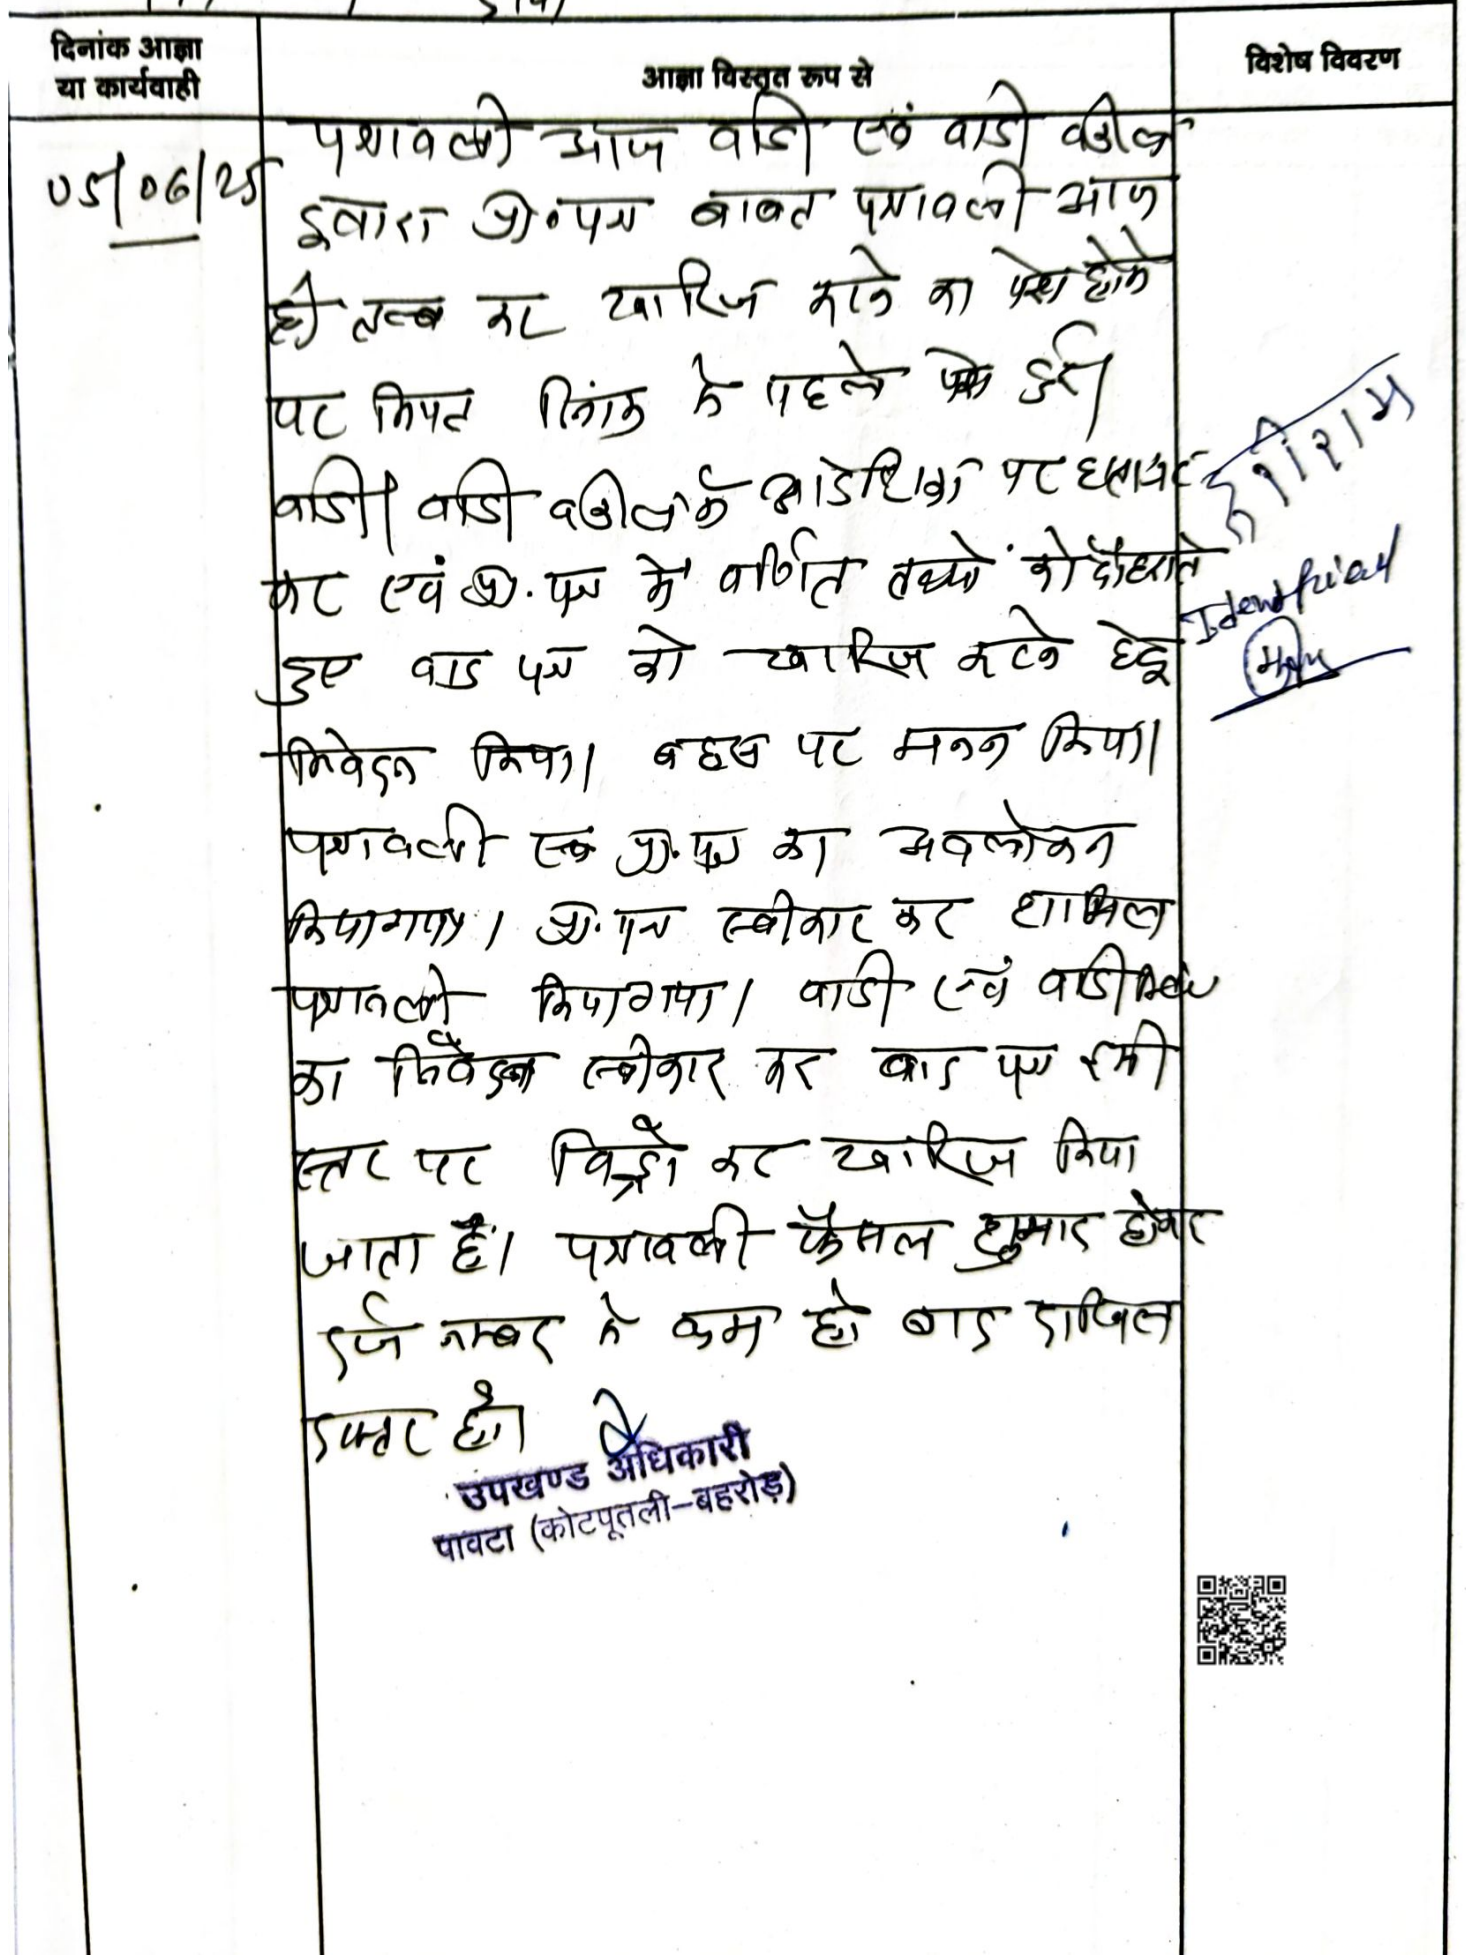 दिनांक आज्ञा
या कार्यवाही
आज्ञा विस्तृत रूप से
विशेष विवरण
05/06/25
पत्रावली आज वादी एवं वादी वकील
द्वारा प्रा.पत्र बाबत पत्रावली आज
ही तलब कर खारिज करने का पेश होने
पर नियत दिनांक से पहले पेश हुई।
वादी/वादी वकील के आदेशिका पर हस्ताक्षर
कर एवं प्रा.पत्र में वर्णित तथ्यों को दोहराते
हुए वाद पत्र को खारिज करने हेतु
निवेदन किया। बहस पर मनन किया।
पत्रावली एवं प्रा.पत्र का अवलोकन
किया गया। प्रा.पत्र स्वीकार कर शामिल
पत्रावली किया गया। वादी एवं वादी
का निवेदन स्वीकार कर वाद पत्र इसी
स्तर पर विड्रो कर खारिज किया
जाता है। पत्रावली फैसल शुमार होकर
दर्ज नम्बर से कम हो बाद दाखिल
दफ्तर हो।
उपखण्ड अधिकारी
पावटा (कोटपूतली-बहरोड़)
Identified